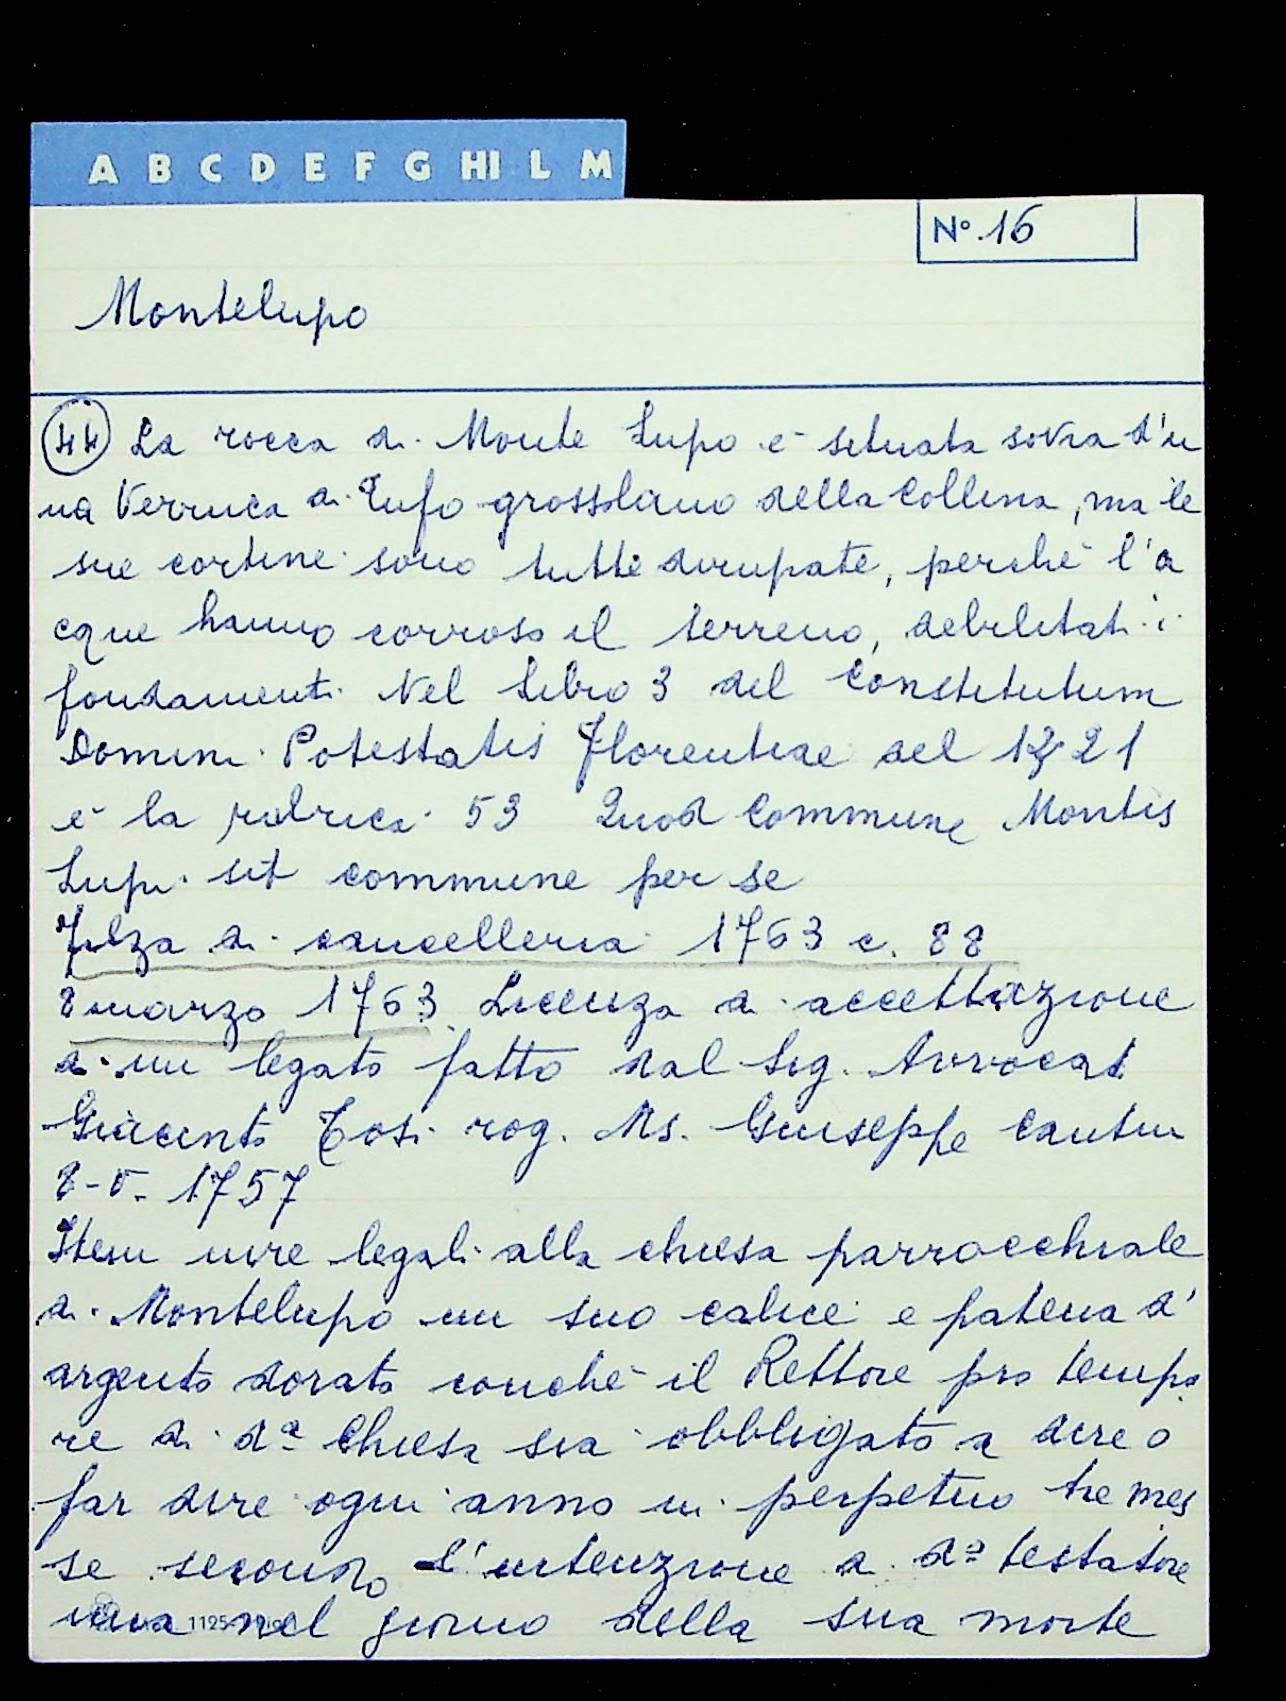 A B C D E F G HI L M
N° 16
Montelupo
44 La rocca di Monte Lupo è situata sovra d'u
na Verruca di Tufo grossolano della Collina, ma le
sue cortine sono tutte dirupate, perché l'a
cque hanno corroso il terreno, debilitati i
fondamenti. Nel Libro 3 del Constitutum
Domini Potestatis Florentiae del 1321
è la rubrica 53 Quod Commune Montis
Lupi sit commune per se
Filza di cancelleria 1763 c. 88
8 marzo 1763 Licenza di accettazione
di un legato fatto dal Sig. Avvocat.
Giacinto Tosi rog. Ms. Giuseppe Cantini
8-5- 1757
Item iure legati alla chiesa parrocchiale
di Montelupo un suo calice e patena d'
argento dorato conché il Rettore pro tempo
re di dª Chiesa sia obbligato a dire o
far dire ogni anno in perpetuo tre mes
se secondo l'intenzione di dº testatore
una nel giorno della sua morte